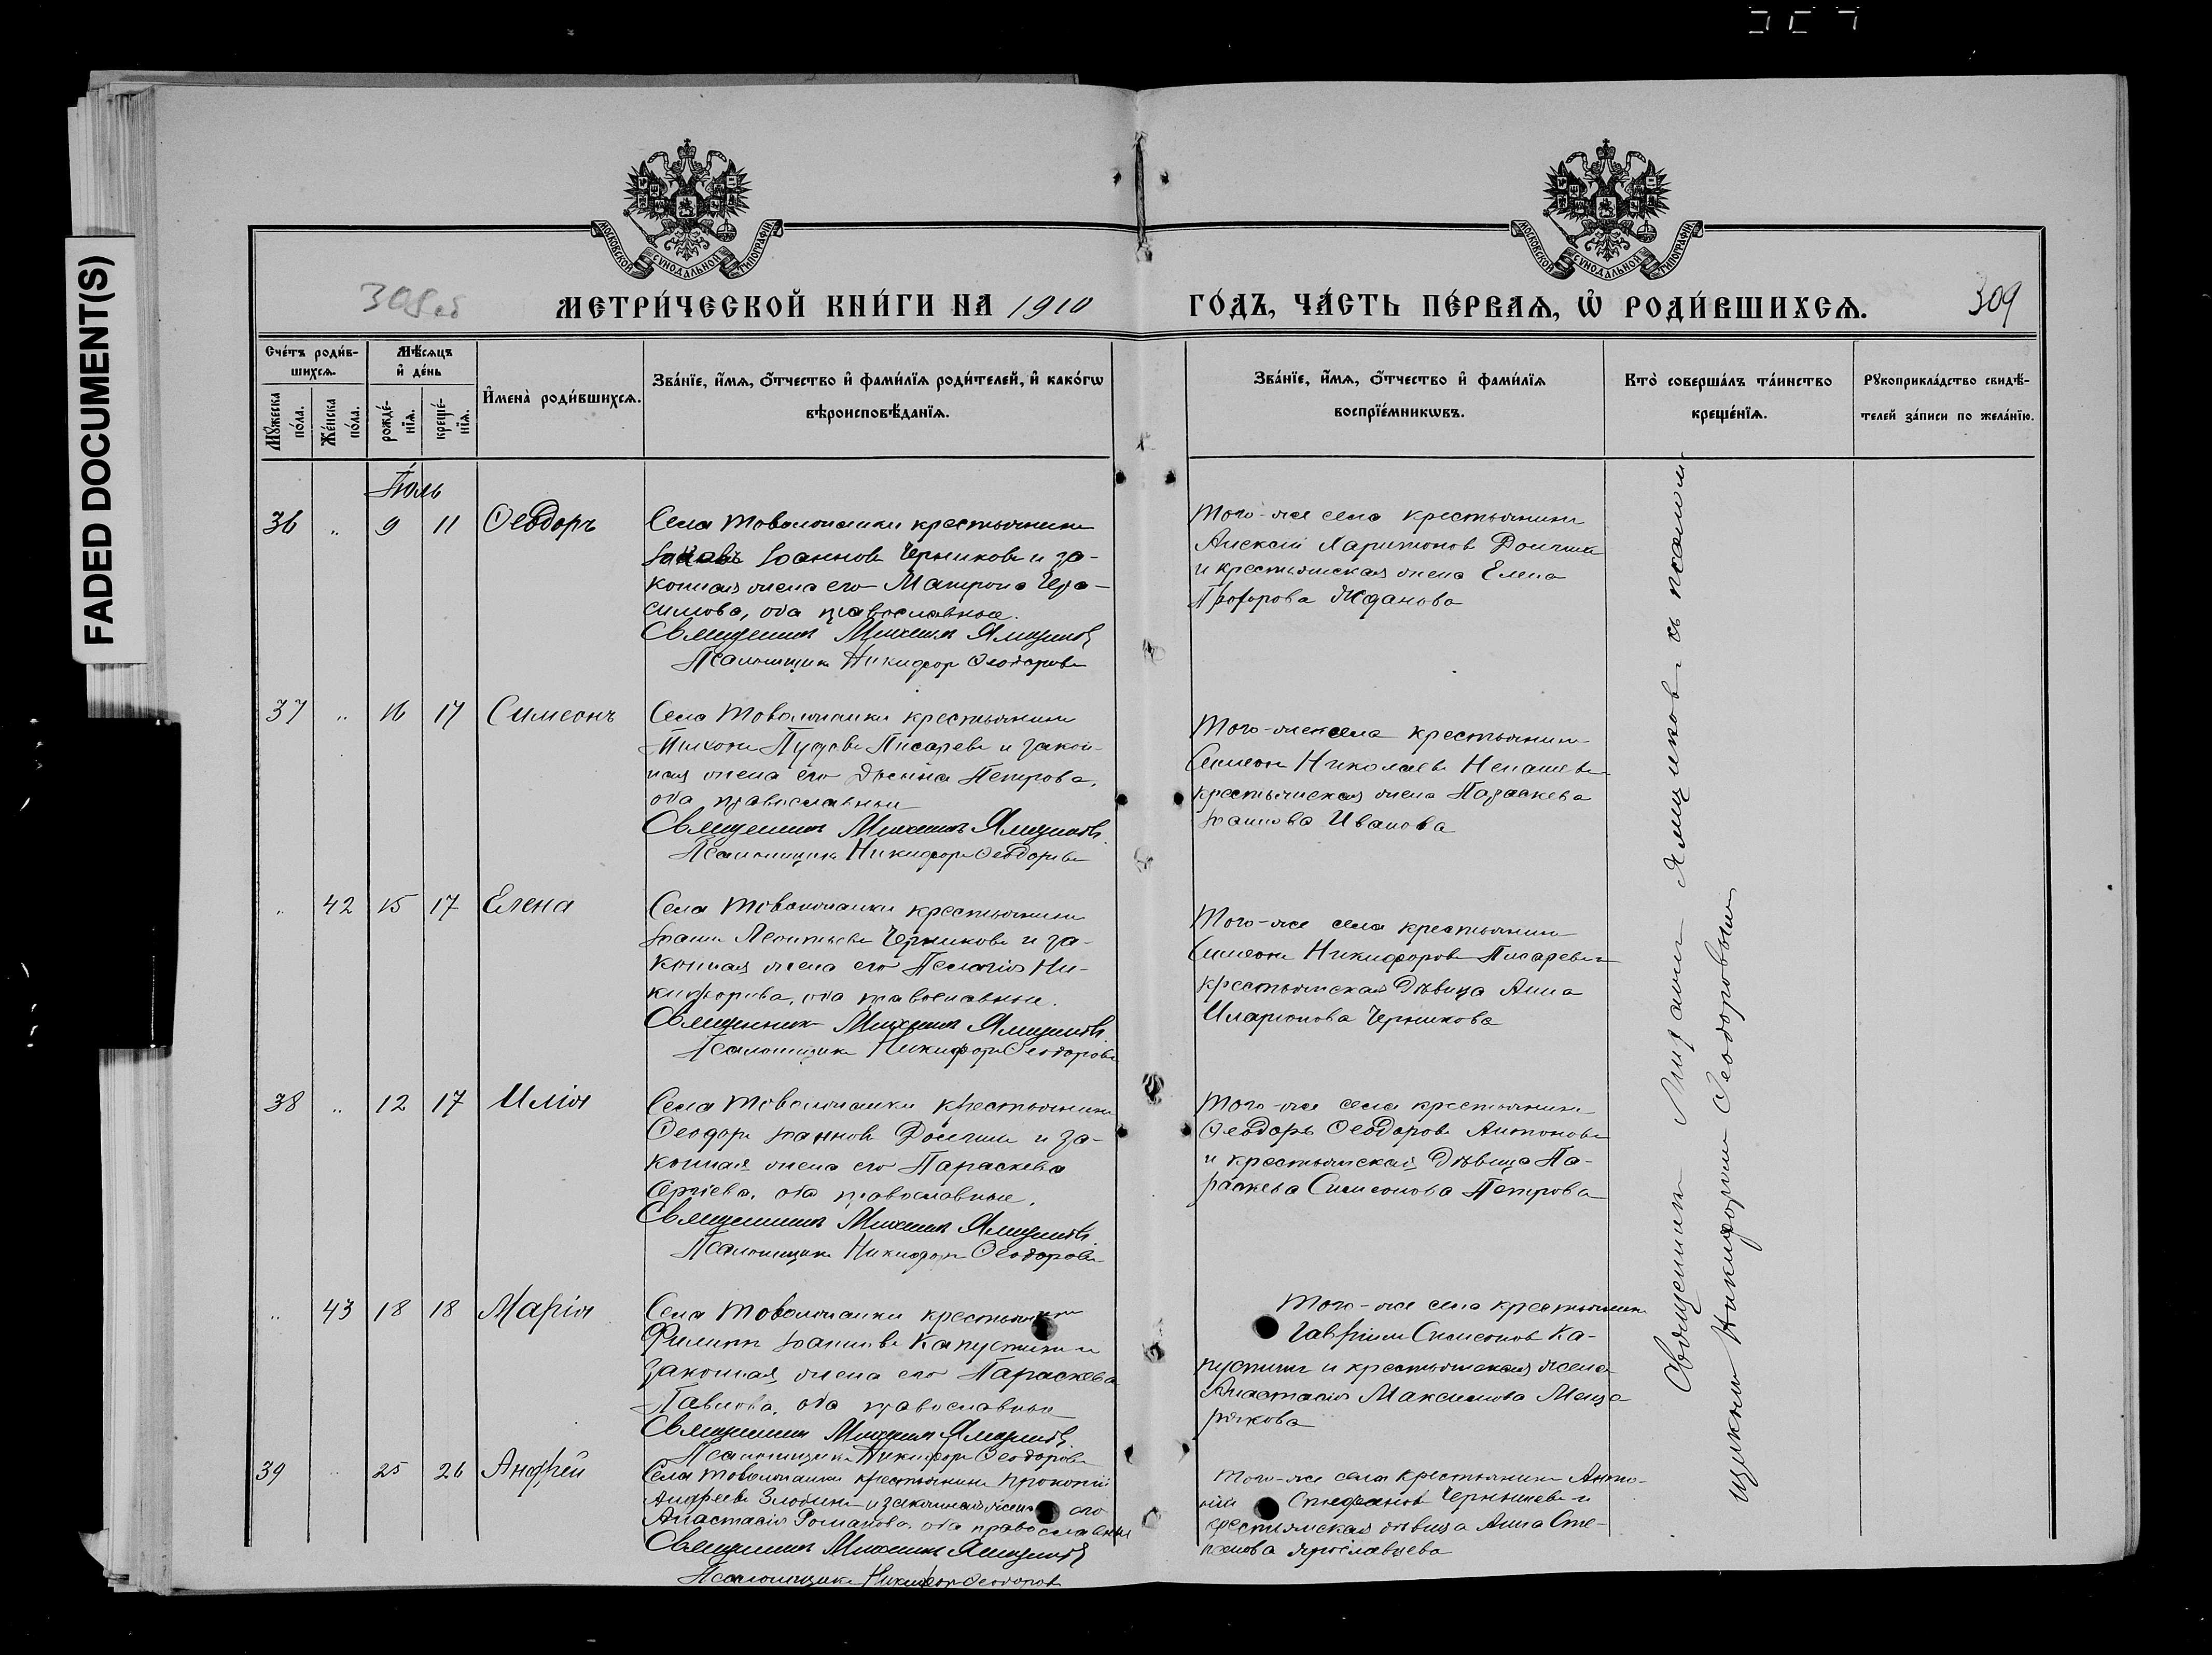 FADED DOCUMENT(S)
МОСКОВСКОЙ СѴНОДАЛЬНОЙ ТИПОГРАФІИ
МОСКОВСКОЙ СѴНОДАЛЬНОЙ ТИПОГРАФІИ
308 об
МЕТРИ́ЧЕСКОЙ КНИ́ГИ НА 1910
ГО́ДЪ, ЧА́СТЬ ПЕ́РВАѦ, Ѽ РОДИ́ВШИХСѦ.
309
Сче́тъ роди́в-
шихсѧ.
Мꙋжеска по́ла.
Же́нска по́ла.
Мѣ́сѧцъ
и҆ де́нь
рожде́-
нїѧ.
креще́-
нїѧ.
И҆мена̀ роди́вшихсѧ.
Зва́нїе, и҆́мѧ, ѻ҆́тчество и҆ фами́лїѧ роди́телей, и҆ како́гѡ
вѣроисповѣ́данїѧ.
Зва́нїе, и҆́мѧ, ѻ҆́тчество и҆ фами́лїѧ
воспрїе́мникѡвъ.
Кто̀ соверша́лъ та́инство
креще́нїѧ.
Рꙋкоприкла́дство свидѣ́-
телей за́писи по жела́нїю.
Іюль
36 " 9 11 Ѳеодоръ
Села Товоложанки крестьянинъ
Іоанновъ Черниковъ и за-
конная жена его Матрона Гера-
симова, оба православные.
Священникъ Михаилъ Ямщиковъ
Псаломщикъ Никифоръ Ѳеодоровъ
Того-же села крестьянинъ
Алексій Харитоновъ Долгихъ
и крестьянская жена Елена
Прохорова Жданова
37 " 16 17 Симеонъ
Села Товоложанки крестьянинъ
Тихонъ Пудовъ Писаревъ и закон-
ная жена его Петрова,
оба православные
Священникъ Михаилъ Ямщиковъ
Псаломщикъ Никифоръ Ѳеодоровъ
Того-же села крестьянинъ
Симеонъ Николаевъ Ненашевъ
крестьянская жена Параскева
Іоаннова Иванова
" 42 15 17 Елена
Села Товоложанки крестьянинъ
Іоаннъ Леонтьевъ Черниковъ и за-
конная жена его Пелагія Ни-
кифорова, оба православные.
Священникъ Михаилъ Ямщиковъ
Псаломщикъ Никифоръ Ѳеодоровъ
Того-же села крестьянинъ
Симеонъ Никифоровъ Писаревъ и
крестьянская дѣвица Анна
Иларіонова Черникова
38 " 12 17 Илія
Села Товоложанки крестьянинъ
Ѳеодоръ Іоанновъ Долгихъ и за-
конная жена его Параскева
Сергіева, оба православные.
Священникъ Михаилъ Ямщиковъ
Псаломщикъ Никифоръ Ѳеодоровъ
Того-же села крестьянинъ
Ѳеодоръ Ѳеодоровъ Антоновъ
и крестьянская дѣвица Па-
раскева Симеонова Петрова
" 43 18 18 Марія
Села Товоложанки крестьянинъ
Филиппъ Іоанновъ Капустинъ и
законная жена его Параскева
Павлова, оба православные
Священникъ Михаилъ Ямщиковъ
Псаломщикъ Никифоръ Ѳеодоровъ
Того-же села крестьянинъ
Гавріилъ Симеоновъ Ка-
пустинъ и крестьянская жена
Анастасія Максимова Меще-
рякова
39 " 25 26 Андрей
Села Товоложанки крестьянинъ Прокопій
Андреевъ Злобинъ и законная жена его
Анастасія Романова, оба православные
Священникъ Михаилъ Ямщиковъ
Псаломщикъ Никифоръ Ѳеодоровъ
Того-же села крестьянинъ Анто-
ній Стефановъ Чернышевъ и
крестьянская дѣвица Анна Сте-
панова Ярославцева
Священникъ Михаилъ Ямщиковъ съ псалом-
щикомъ Никифоромъ Ѳеодоровымъ